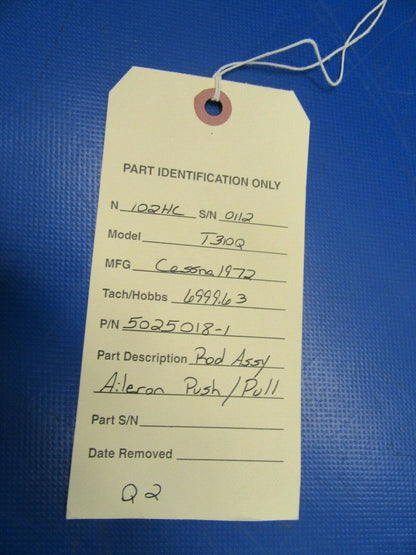 PART IDENTIFICATION ONLY
N 102HC S/N 0112
Model T310Q
MFG Cessna 1972
Tach/Hobbs 6999.63
P/N 5025018-1
Part Description Rod Assy
Aileron Push/Pull
Part S/N
Date Removed
Q2